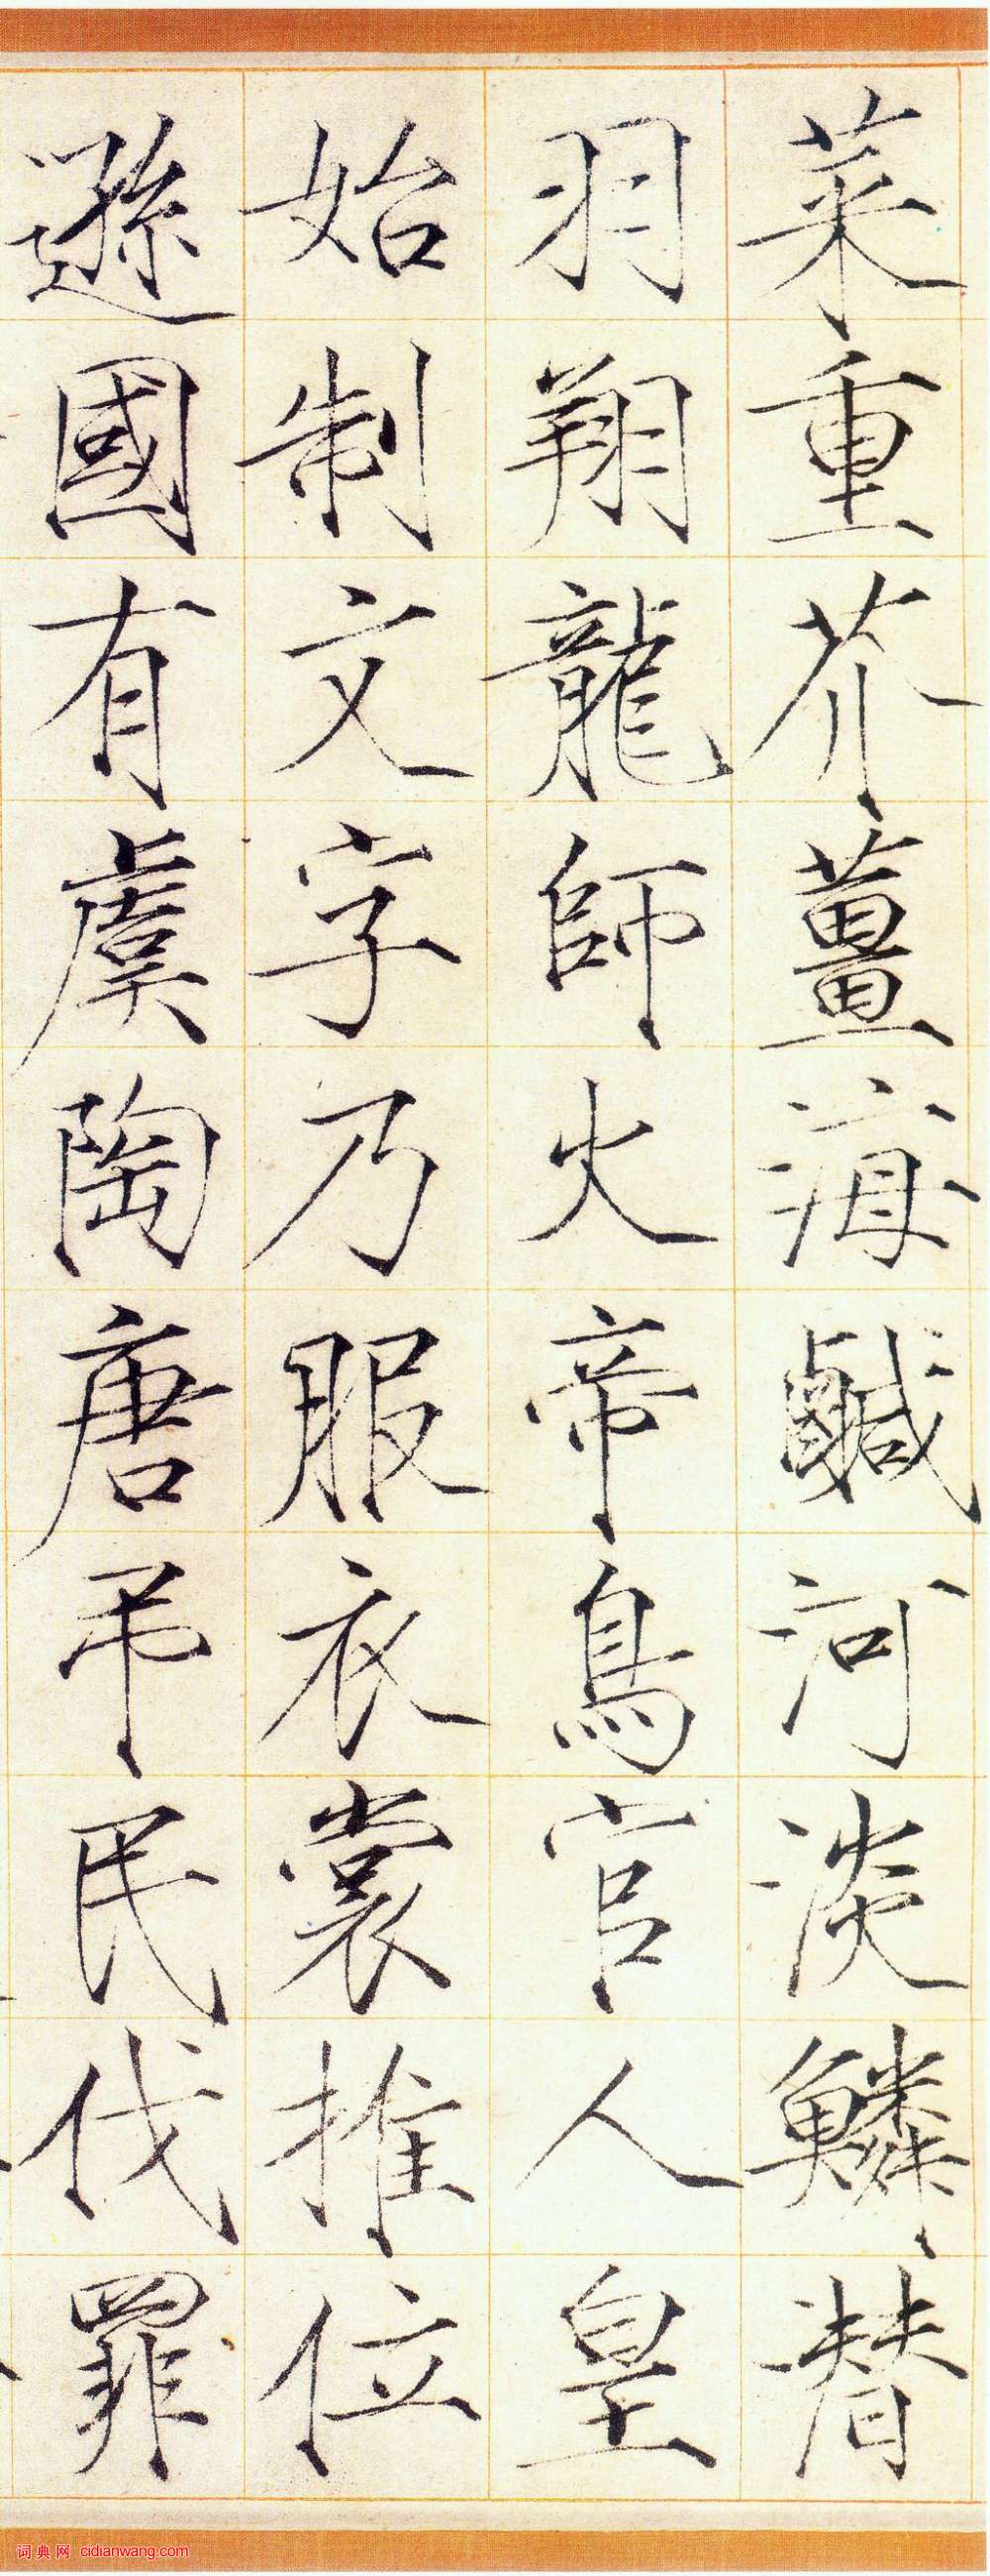 菜重芥薑海鹹河淡鱗潛
羽翔龍師火帝鳥官人皇
始制文字乃服衣裳推位
遜國有虞陶唐吊民伐罪
词典网 cidianwang.com